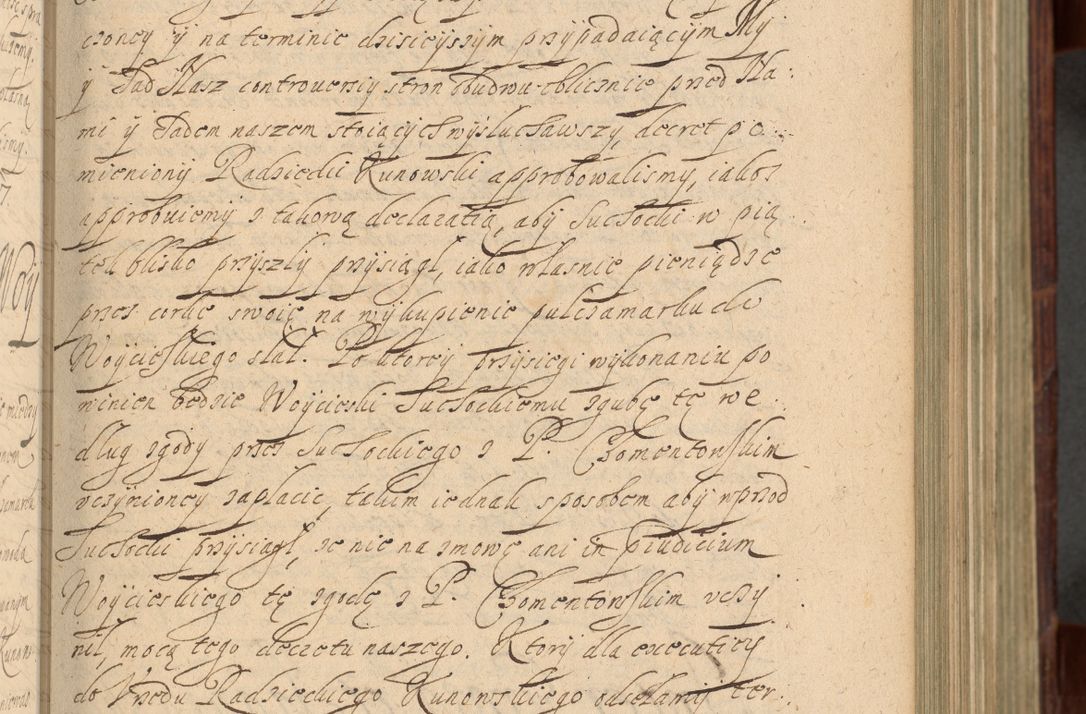 czoney y na terminie dzisieyszym przypadaiącym My
y Sąd Nasz controuersiy stron obudwu oblicznie przed Na:
mi y Sądem naszem stoiących wysłuchawszy, decret po
mieniony Radziecki Kunowski approbowalismy, iakosz
approbuiemy z takową declaratią, aby Suchocki w pią
tek blisko przyszły przysiągł, iako własnie pieniądze
przez corkę swoię na wykupienie pulczamarku do
Woycieskiego słał. Po ktorey przysiegi wykonaniu po
winien będzie Woycieski Suchockiemu zgubę tę we
dług zgody przez Suchockiego z P. Chomentowskim
uczynioney zapłacic, takim iednak sposobem aby wprzod
Suchocki przysiągł, że nie na zmowę ani in piudicium
Woycieskiego tę zgodę z P. Chomentowskim uczy
nił, mocą tego decretu naszego. Ktory dla executiey
do Urzędu Radzieckiego Kunowskiego odsełamy ter: